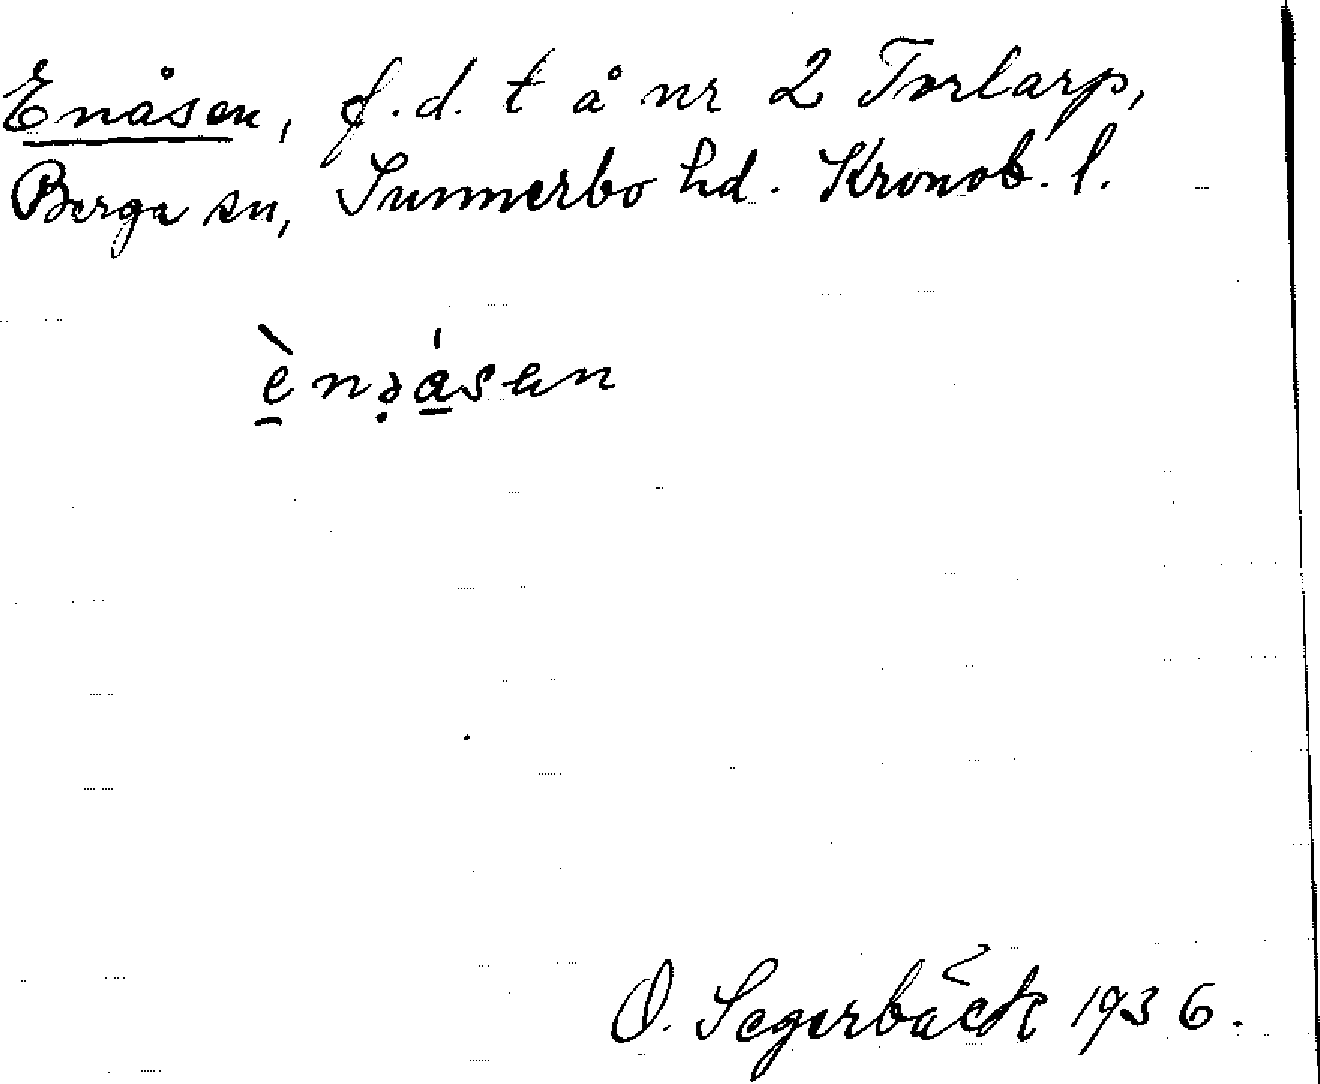 Enåsen, f.d. t å nr 2 Torlarp,
Berga sn, Sunnerbo hd. Kronob. l.
O. Segerbäck 1936.